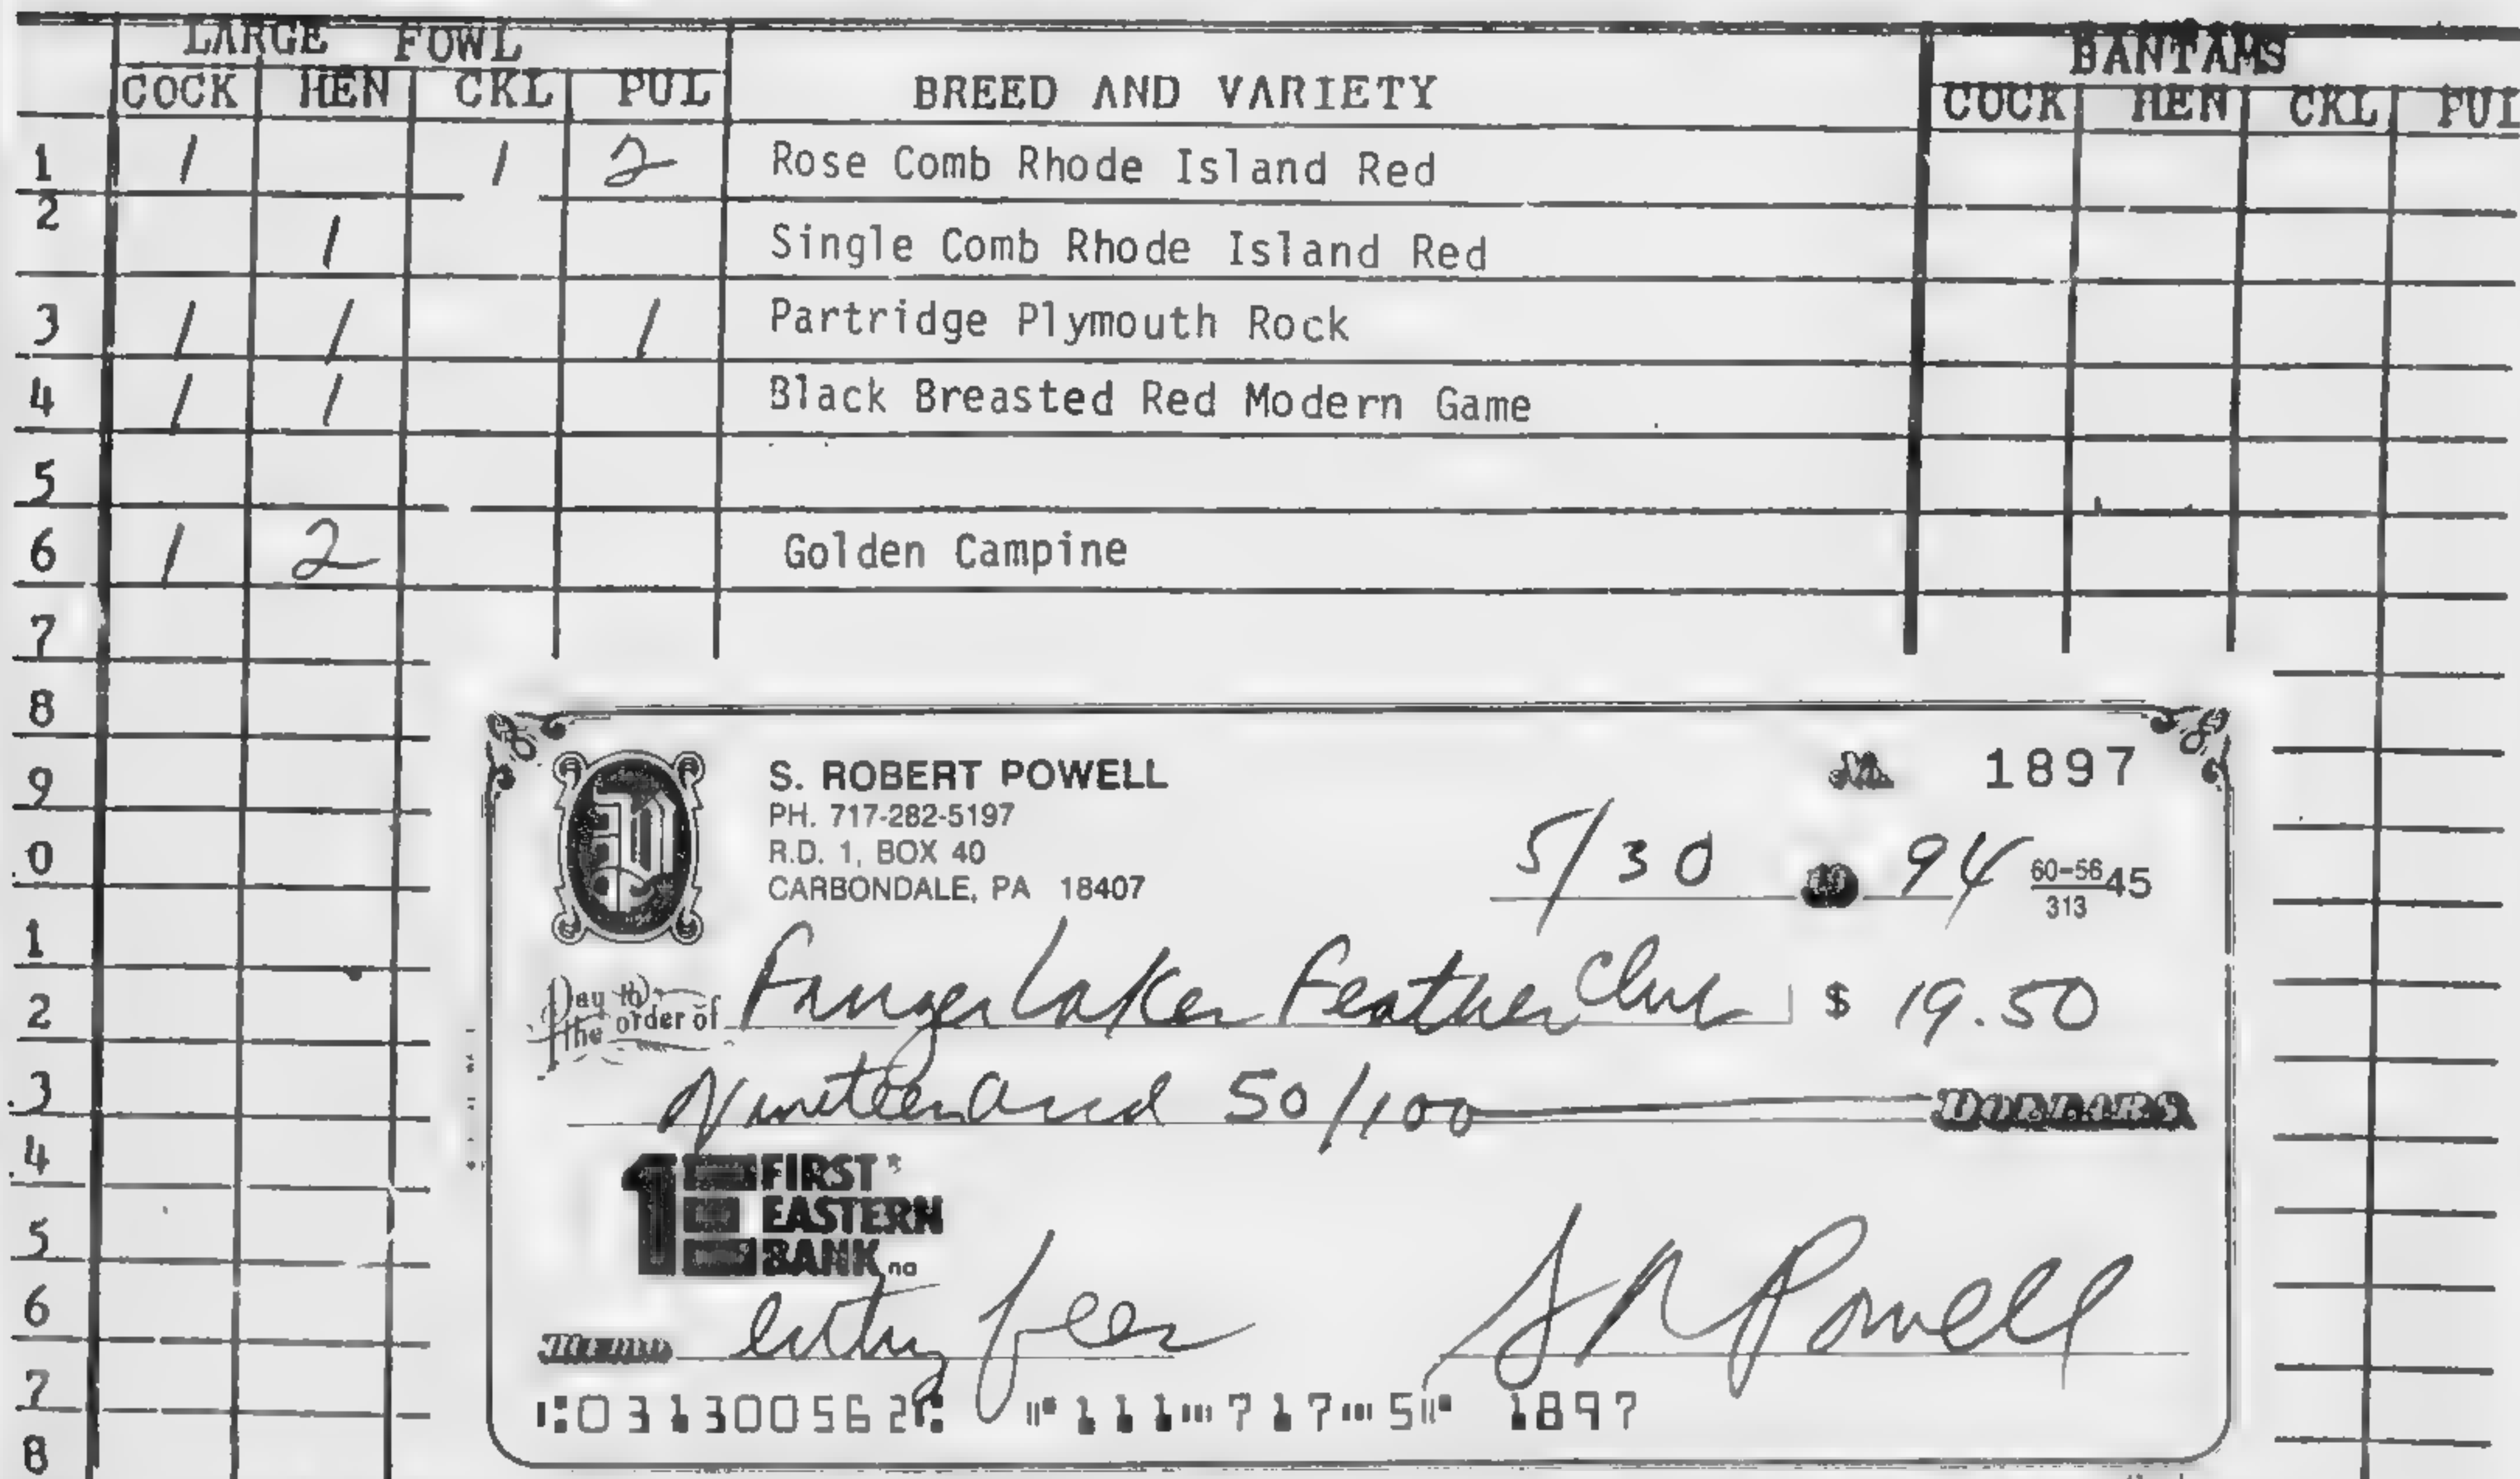 LARGE FOWL BANTAMS
COCK HEN CKL PUL BREED AND VARIETY COCK HEN CKL PUL
1 1 1 2 Rose Comb Rhode Island Red
2 1 Single Comb Rhode Island Red
3 1 1 1 Partridge Plymouth Rock
4 1 1 Black Breasted Red Modern Game
5
6 1 2 Golden Campine
7
8
9
0
1
2
3
4
5
6
7
8
S. ROBERT POWELL
PH. 717-282-5197
R.D. 1, BOX 40
CARBONDALE, PA 18407
No. 1897
5/30 19 94 60-56 45
313
Pay to the order of Finger Lakes Feather Club $ 19.50
Nineteen and 50/100 DOLLARS
1E FIRST EASTERN BANK na
Memo entry fees S R Powell
⑆031300562⑆ ⑈111⑉717⑉5⑈ 1897